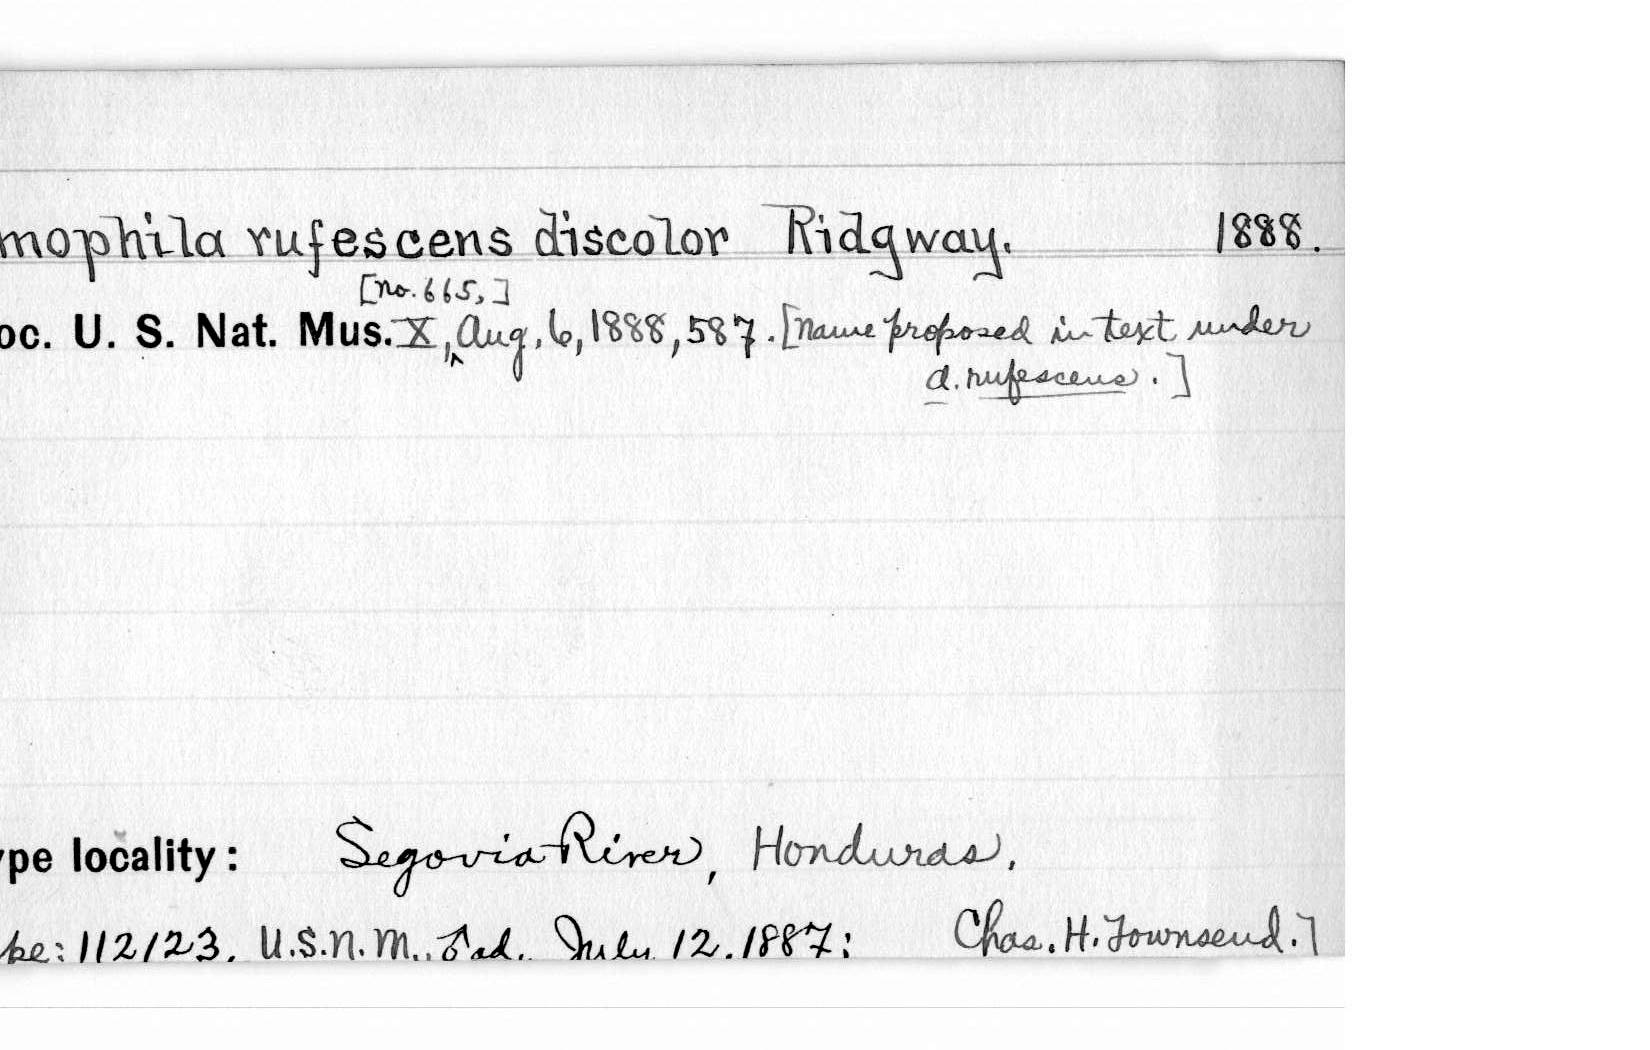 mophila rufescens discolor Ridgway. 1888.
[no. 665,]
oc. U. S. Nat. Mus. X, Aug, 6, 1888, 587. [Name proposed in text under
a. rufescens.]
ype locality: Segovia River, Honduras.
pe: 112123, U.S.N.M., ♂ ad., July 12, 1887; Chas. H. Townsend.]